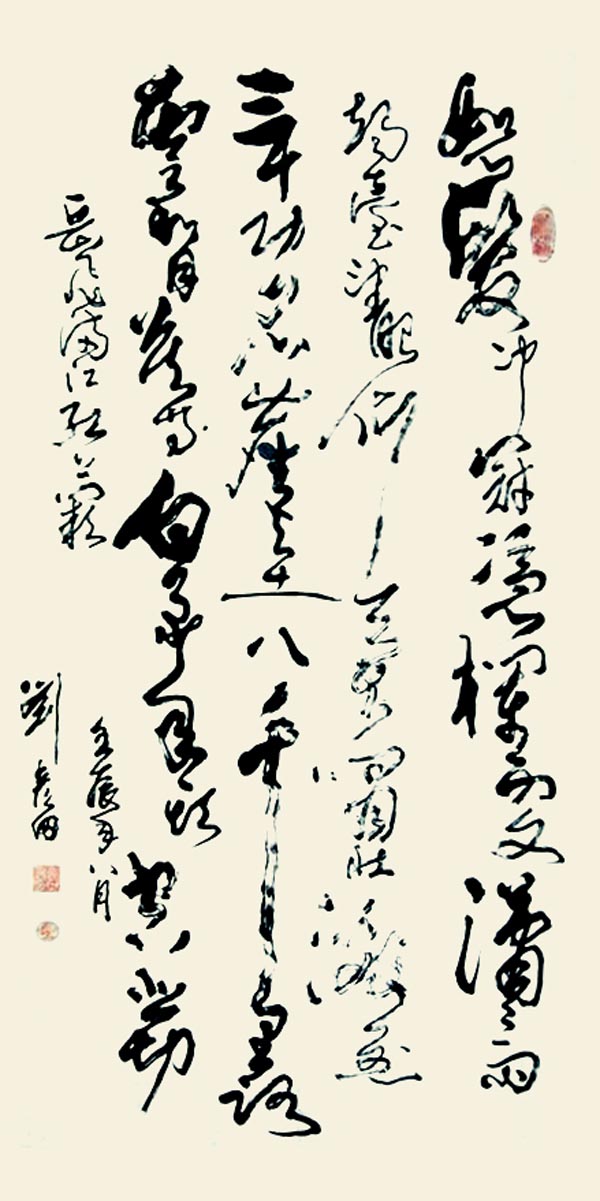 怒髮冲冠憑欄處瀟瀟雨
歇擡望眼仰天長嘯壯懷激烈
三十功名塵與土八千里路
雲和月莫等閒白了少年頭空悲切
岳飛滿江紅上闋
壬辰年八月
劉